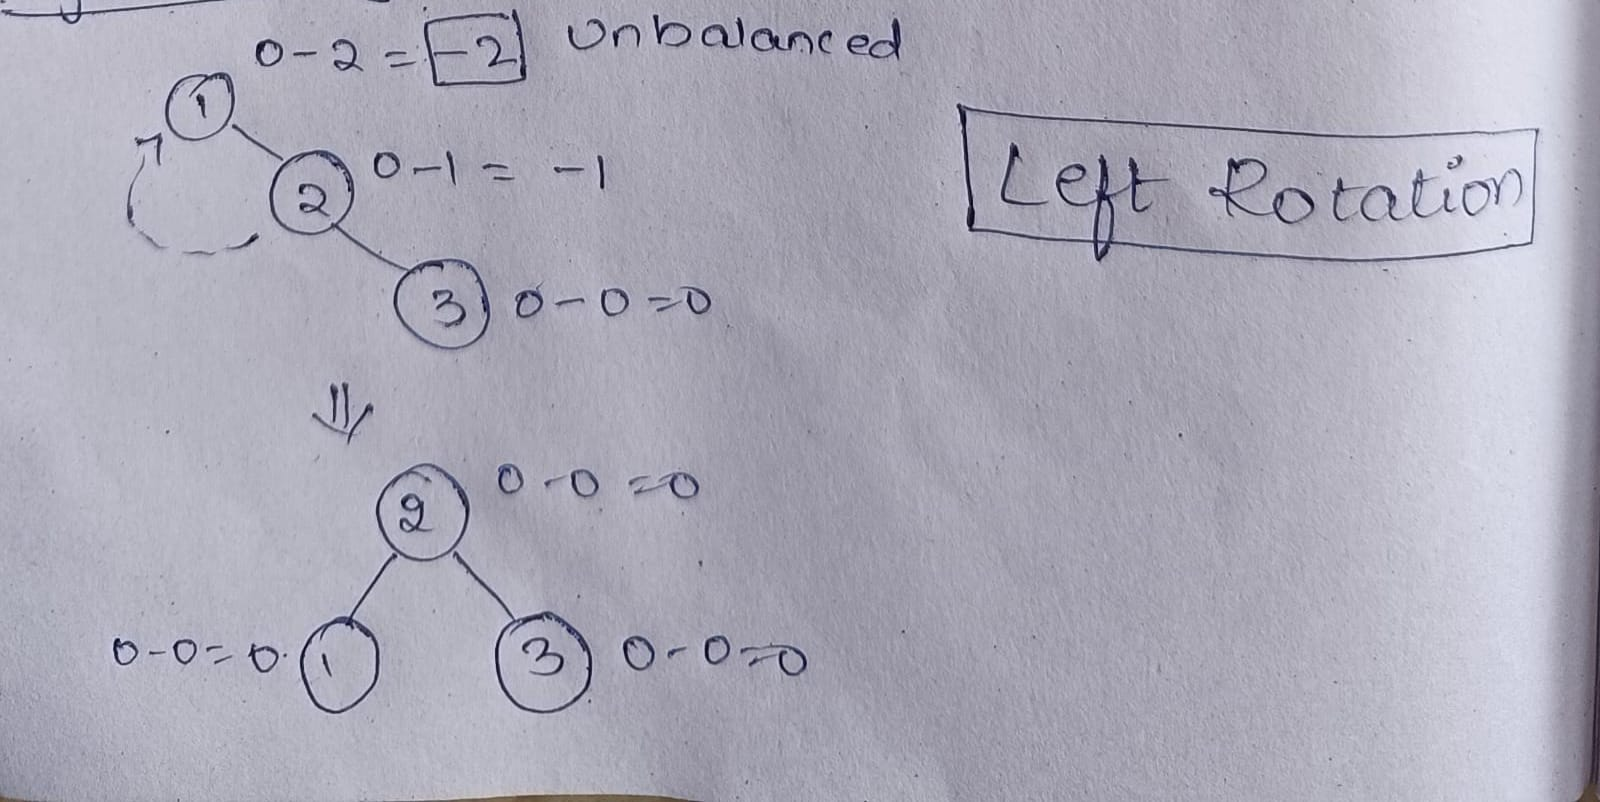 0-2 = -2 Unbalanced
1
2 0-1 = -1
Left Rotation
3 0-0=0
2 0-0=0
0-0=0. 1 3 0-0=0